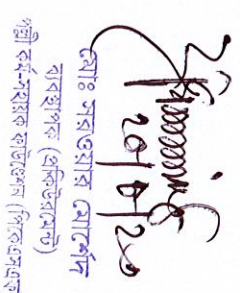 মোঃ সরওয়ার মোর্শেদ
ব্যবস্থাপক (প্রকিউরমেন্ট)
পল্লী কর্ম-সহায়ক ফাউন্ডেশন (পিকেএসএফ